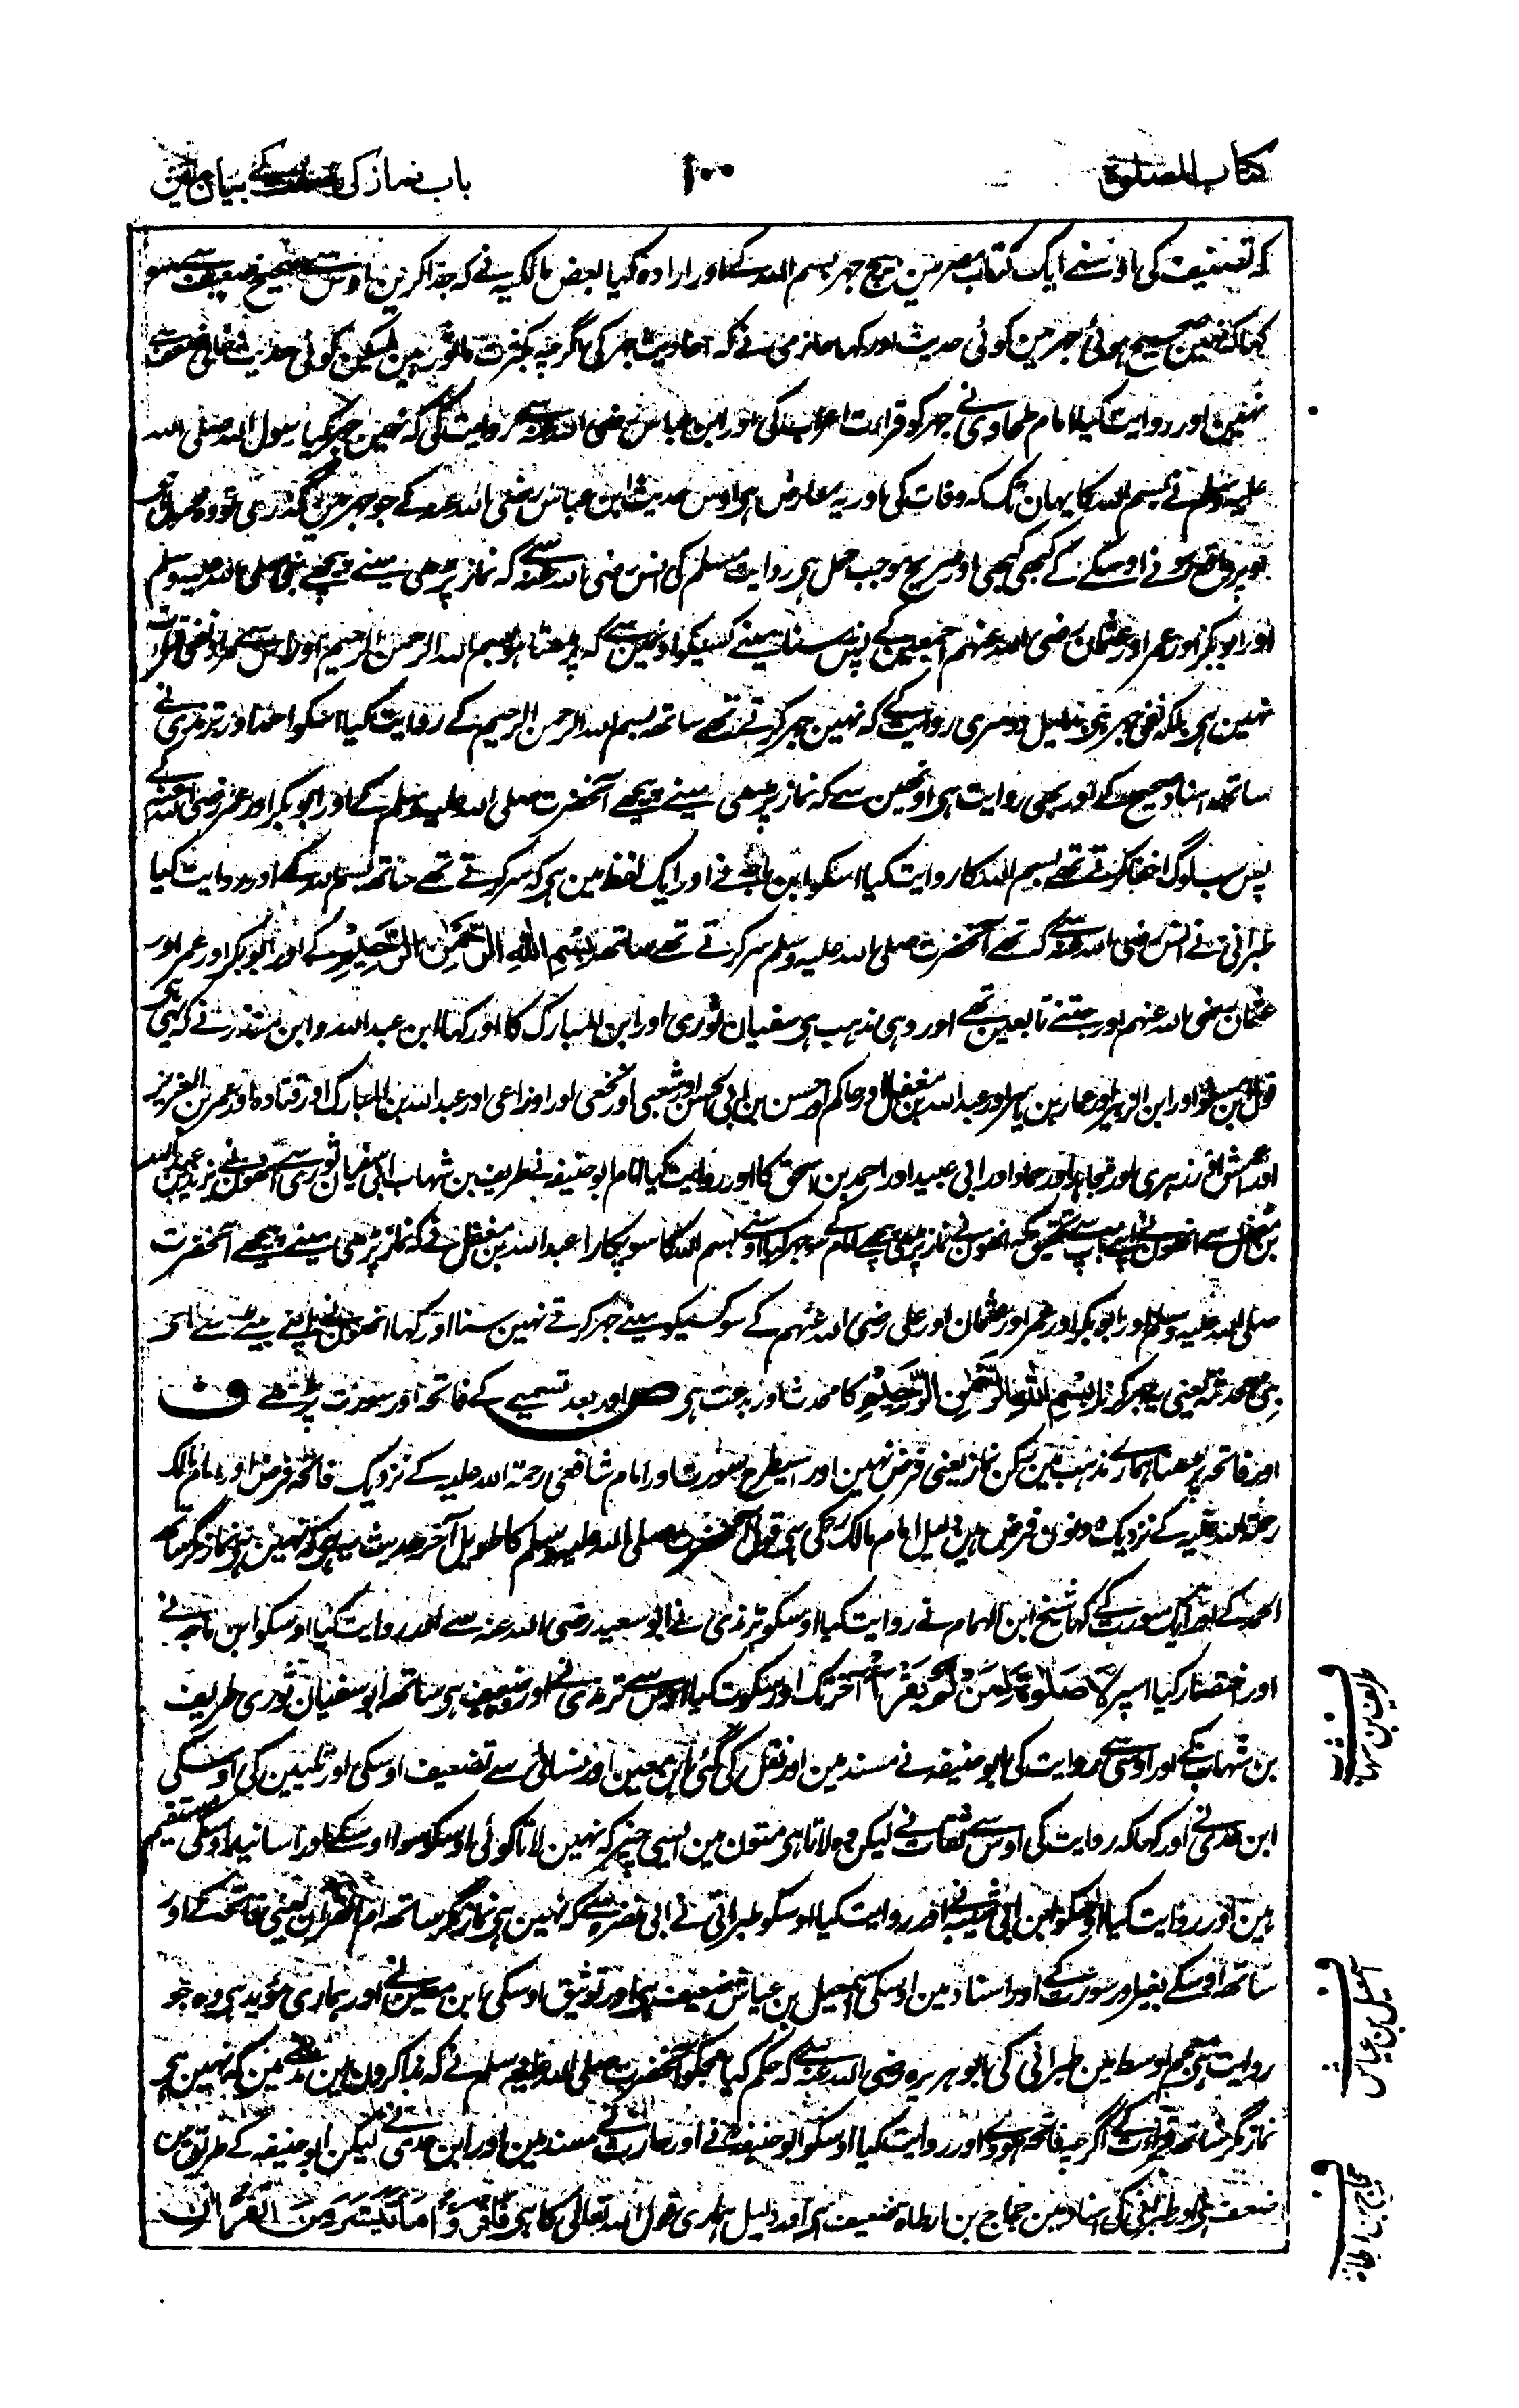 کتاب الصلوة
۱۰۰
باب نماز کی صفت کے بیان مین
کہ تصنیف کی اوسنے ایک کتاب مصر مین بیچ جہر بسم اللہ کے اور ارادہ کیا بعض مالکیہ نے کہ جدا کرین اوس سے صحیح ضعیف سے سو
کہا کہ نہین صحیح ہوئی جہر مین کوئی حدیث اور کہا حازمی نے کہ احادیث جہر کی اگرچہ بکثرت ماثور ہین لیکن کوئی حدیث خالی ضعف سے
نہین اور روایت کیا امام طحاوی نے جہر کو قراءت اعراب کی اور ابن عباس رضی اللہ عنہ سے روایت کی کہ نہین جہر کیا رسول اللہ صلی اللہ
علیہ وسلم نے بسم اللہ کا یہان تک کہ وفات کی اور یہ معارض ہی اوس حدیث ابن عباس رضی اللہ عنہ کے جو جہر مین گذری تو وہ محمول ہی
اوپر واقع ہونے اوسکے کے کبھی کبھی اور صریح موجب حمل ہی روایت مسلم کی انس رضی اللہ عنہ سے کہ نماز پڑھی مینے پیچھے نبی صلی اللہ علیہ وسلم
اور ابو بکر اور عمر اور عثمان رضی اللہ عنہم اجمعین کے پس سنا مینے کسیکو اونمین سے کہ پڑھتا ہو بسم اللہ الرحمن الرحیم اور اس سے مراد نفی قراءت
نہین ہی بلکہ نفی جہر ہی بدلیل دوسری روایت کے کہ نہین جہر کرتے تھے ساتھ بسم اللہ الرحمن الرحیم کے روایت کیا اسکو احمد اور ترمذی نے
ساتھ اسناد صحیح کے اور بھی روایت ہی اونھین سے کہ نماز پڑھی مینے پیچھے آنحضرت صلی اللہ علیہ وسلم کے اور ابو بکر اور عمر رضی اللہ عنہ کے
پس سب لوگ اخفا کرتے تھے بسم اللہ کا روایت کیا اسکو ابن ماجہ نے اور ایک لفظ مین ہی کہ سر کرتے تھے ساتھ بسم اللہ کے اور روایت کیا
طبرانی نے انس رضی اللہ عنہ سے کہ تھے آنحضرت صلی اللہ علیہ وسلم سر کرتے تھے ساتھ بِسْمِ اللّٰهِ الرَّحْمٰنِ الرَّحِيْمِ کے اور ابو بکر اور عمر اور
عثمان رضی اللہ عنہم اور جتنے تابعین تھے اور وہی مذہب ہی سفیان ثوری اور ابن المبارک کا اور کہا ابن عبد اللہ و ابن منذر نے کہ یہی ہی
قول ابن مسعود اور ابن الزبیر اور عمار بن یاسر اور عبد اللہ بن مغفل اور حاکم اور حسن بن ابی الحسن اور شعبی اور نخعی اور اوزاعی اور عبد اللہ بن المبارک اور قتادہ اور عمر بن العزیز
اور اعمش اور زہری اور مجاہد اور حماد اور ابی عبید اور احمد بن اسحق کا اور روایت کیا امام ابو حنیفہ نے طریف بن شہاب ابی سفیان ثوری سے انھون نے یزید بن عبد اللہ
بن مغفل سے انھون نے اپنے باپ سے تحقیق کہ انھون نے نماز پڑھی پیچھے امام کے سو جہر کیا اوسنے بسم اللہ کا سو پکارا عبد اللہ بن مغفل نے کہ نماز پڑھی مینے پیچھے آنحضرت
صلی اللہ علیہ وسلم اور ابو بکر اور عمر اور عثمان اور علی رضی اللہ عنہم کے سو کسیکو مینے جہر کرتے نہین سنا اور کہا انھون نے اپنے بیٹے سے اے
بنی محدث یعنی یہ جہر کرنا بِسْمِ اللّٰهِ الرَّحْمٰنِ الرَّحِيْمِ کا محدث اور بدعت ہی ص اور بعد تسمیے کے فاتحہ اور سورت پڑھے ف
اور فاتحہ پڑھنا ہمارے مذہب مین رکن نماز یعنی فرض نہین اور اسیطرح سورت اور امام شافعی رحمۃ اللہ علیہ کے نزدیک فاتحہ فرض اور امام مالک
رحمۃ اللہ علیہ کے نزدیک دونون فرض ہین دلیل امام مالک کی ہی قول آنحضرت صلی اللہ علیہ وسلم کا طویل آخر حدیث یہ ہی کہ نہین ہی نماز مگر ساتھ
الحمد کے اور ایک سورت کے کہا شیخ ابن الہمام نے روایت کیا اوسکو ترمذی نے ابو سعید رضی اللہ عنہ سے اور روایت کیا اوسکو ابن ماجہ نے
اور اختصار کیا اسپر لَا صَلٰوةَ لِمَنْ لَمْ يَقْرَأْ آخر تک اور سکوت کیا اوس سے ترمذی نے اور وہ ضعیف ہی ساتھ ابو سفیان ثوری طریف
بن شہاب کے اور اوسی سے روایت کی ابو حنیفہ نے مسند مین اور نقل کی گئی ابن معین اور نسائی سے تضعیف اوسکی اور تلیین کی اوسکی
ابن عدی نے اور کہا کہ روایت کی اوس سے ثقات نے لیکن وہ لاتا ہی متون مین ایسی چیز کہ نہین لاتا کوئی اوسکو سوا اوسکے اور اسانید اوسکی مستقیم
ہین اور روایت کیا اوسکو ابن ابی شیبہ نے اور روایت کیا اوسکو طبرانی نے ابی نضرہ سے کہ نہین ہی نماز مگر ساتھ ام القران یعنی فاتحہ کے اور
ساتھ اوسکے بغیر اور سورت کے اور اسناد مین اوسکی اسمعیل بن عیاش ضعیف ہی اور توثیق اوسکی ابن معین نے اور ہماری مؤید ہی وہ جو
روایت ہی معجم اوسط مین طبرانی کی ابو ہریرہ رضی اللہ عنہ سے کہ حکم کیا مجکو آنحضرت صلی اللہ علیہ وسلم نے کہ ندا کرون مین مدینے مین کہ نہین ہی
نماز مگر ساتھ قراءت کے اگرچہ فاتحہ ہووے اور روایت کیا اوسکو ابو حنیفہ نے اور حارث نے مسند مین اور ابن عدی نے لیکن ابو حنیفہ کے طریق مین
ضعف ہی اور طبرانی کی اسناد مین حجاج بن ارطاہ ضعیف ہی اور دلیل ہماری قول اللہ تعالی کا ہی فَاقْرَءُوْا مَا تَيَسَّرَ مِنَ الْقُرْاٰنِ
طریف بن شہاب
اسمعیل بن عیاش
حجاج بن ارطاہ